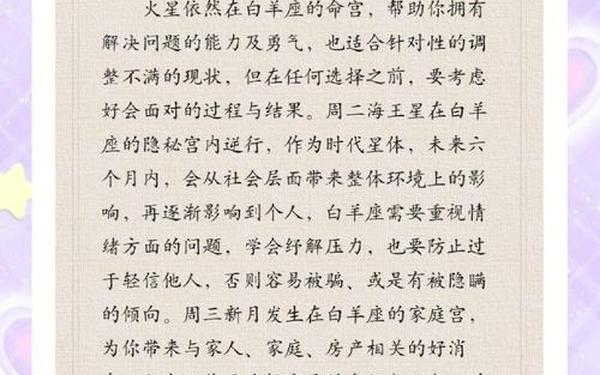 火星依然在白羊座的命宫，帮助你拥有
解决问题的能力及勇气，也适合针对性的调
整不满的现状，但在任何选择之前，要考虑
好会面对的过程与结果。周二海王星在白羊
座的隐秘宫内逆行，作为时代星体，未来六
个月内，会从社会层面带来整体环境上的影
响，再逐渐影响到个人，白羊座需要重视情
绪方面的问题，学会纾解压力，也要防止过
于轻信他人，否则容易被骗、或是有被隐瞒
的倾向。周三新月发生在白羊座的家庭宫，
为你带来与家人、家庭、房产相关的好消